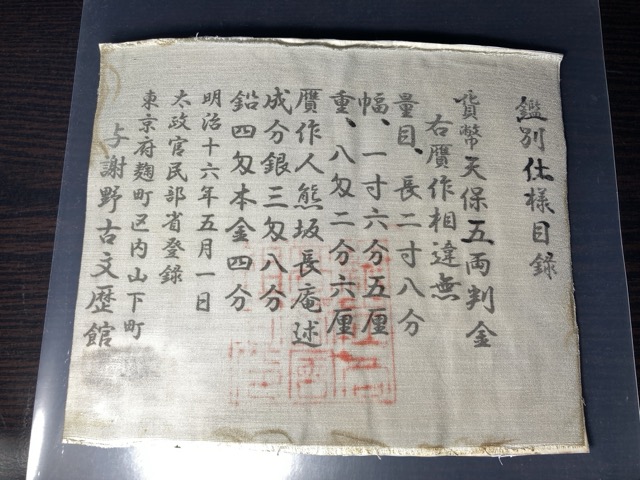 鑑別仕様目録
貨幣天保五両判金
右贋作相違無
量目、長二寸八分
幅、一寸六分五厘
重、八匁二分六厘
贋作人熊坂長庵述
成分銀三匁八分
鉛四匁本金四分
明治十六年五月一日
太政官民部省登録
東京府麹町区内山下町
与謝野古文歴館